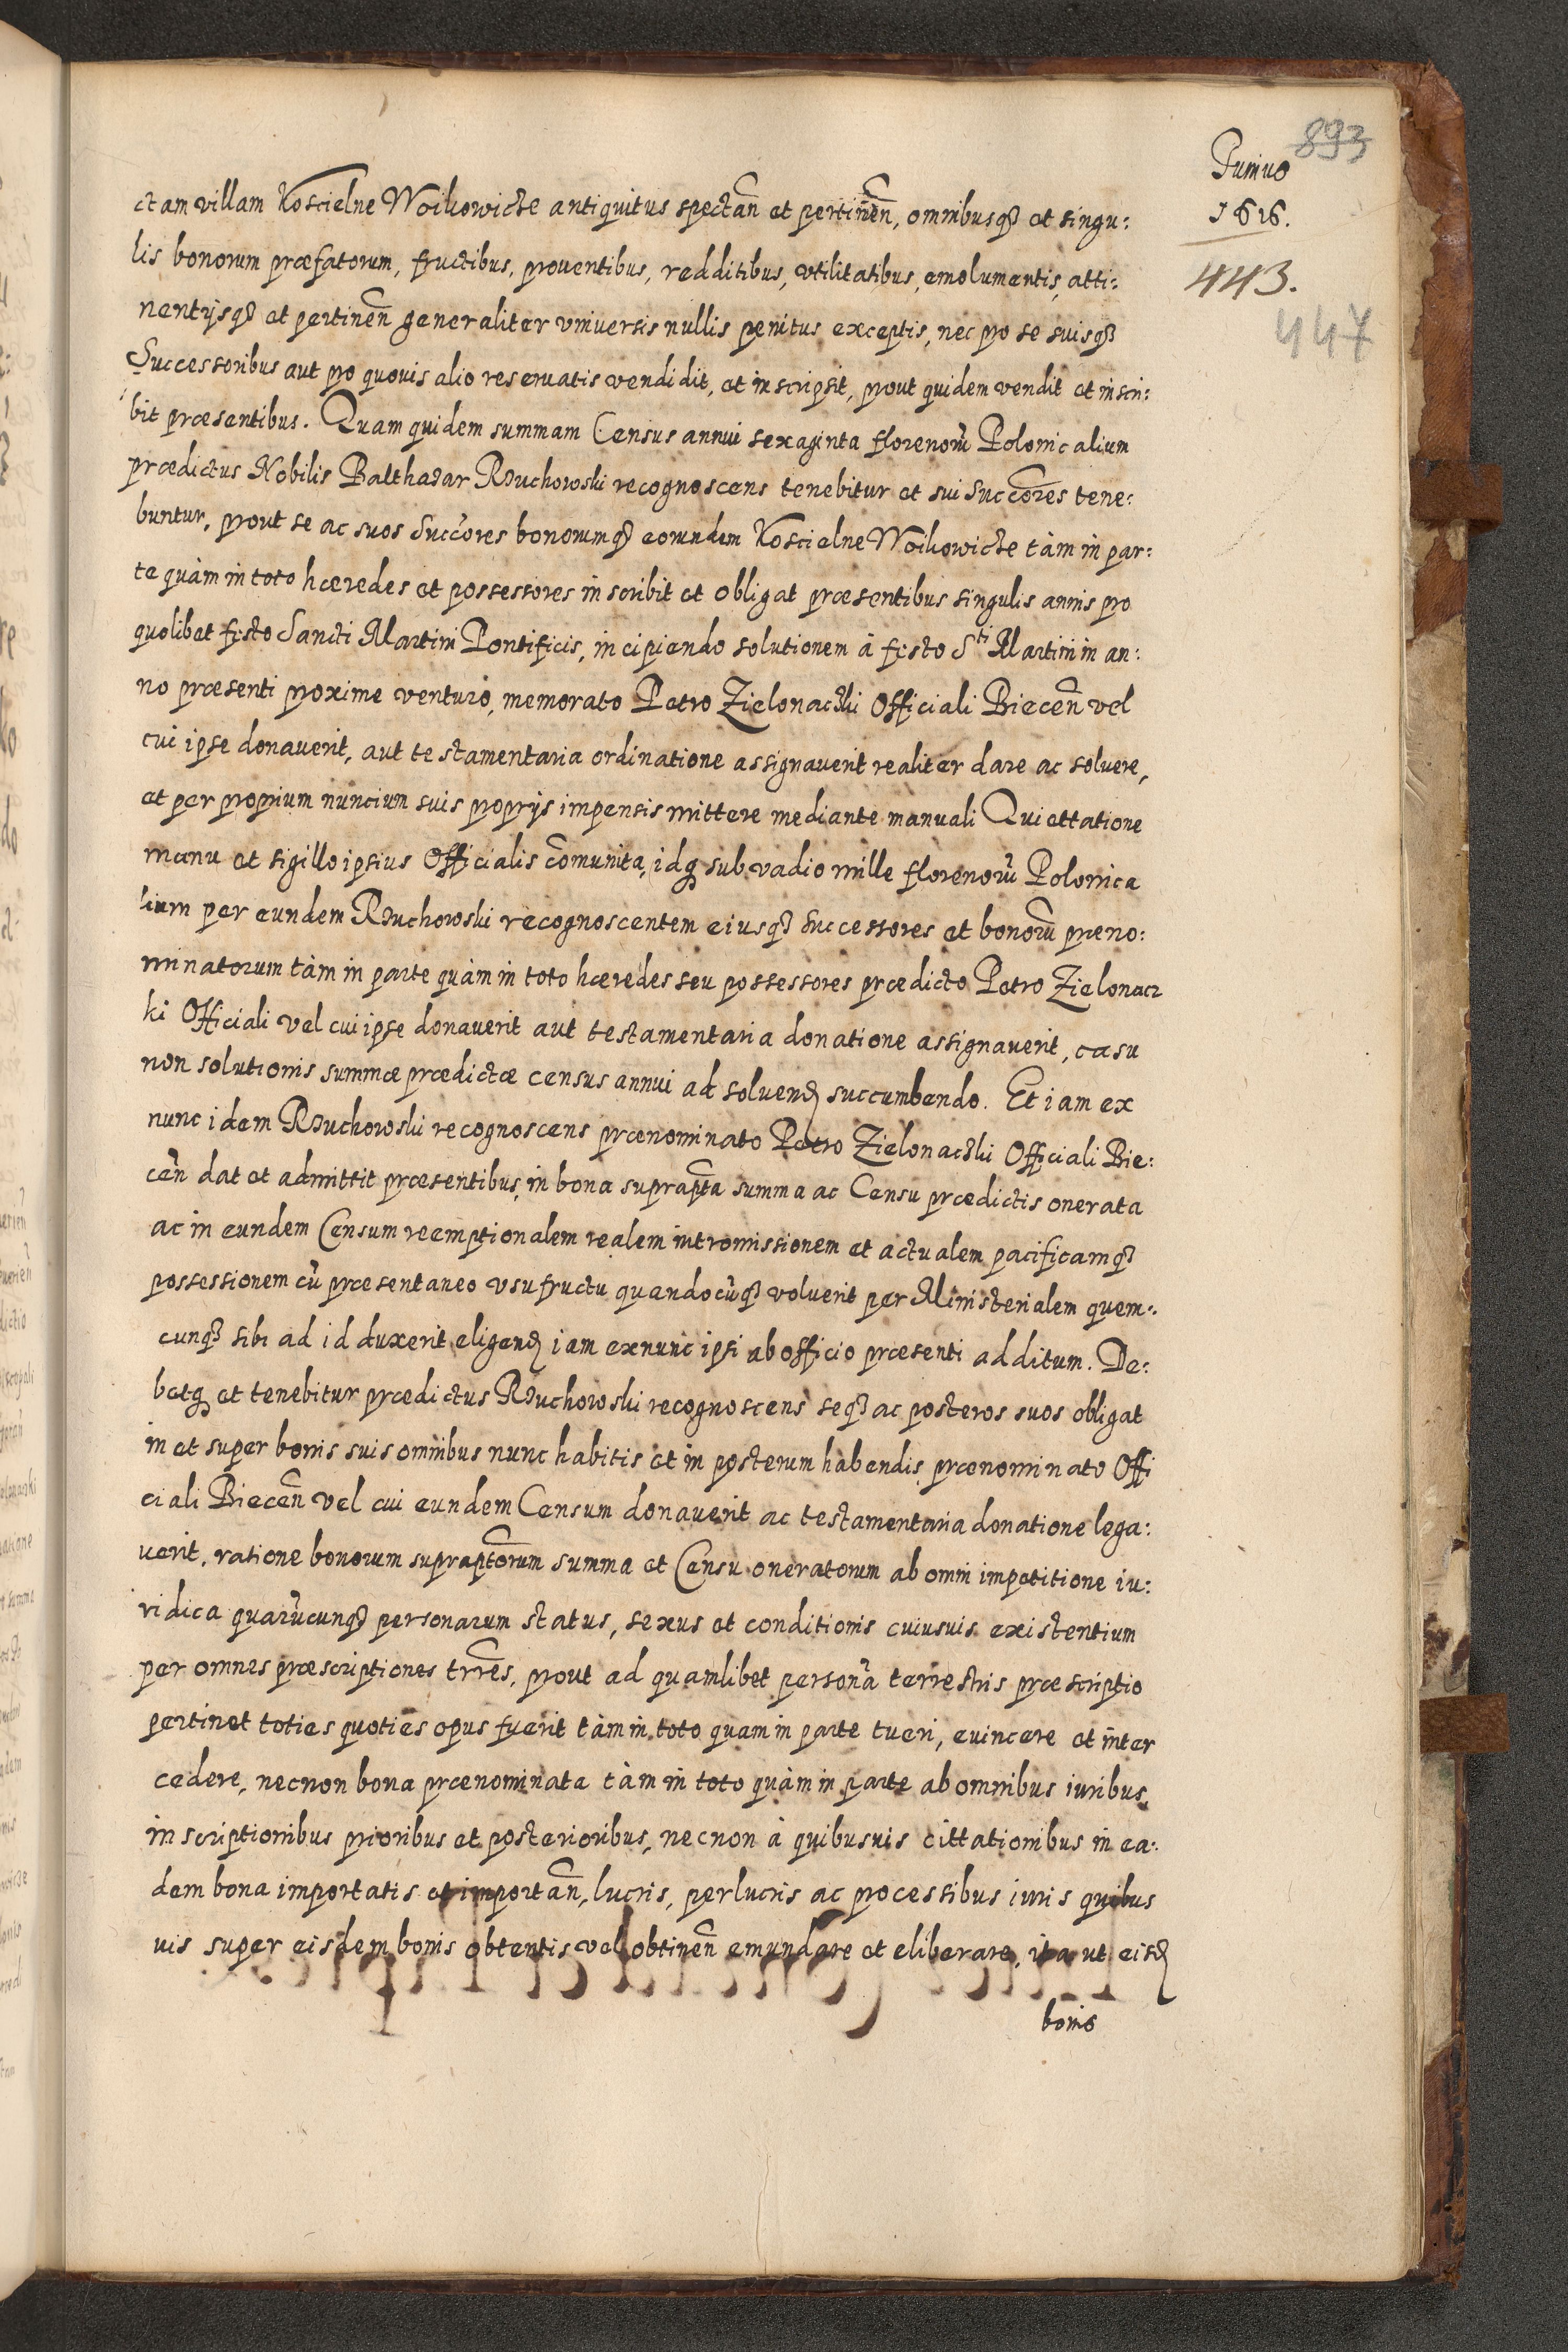 893
Junius
1616.
443.
447
ctam villam Koscielne Woikowicze antiquitus spectañ et pertineñ, omnibusq3 et singu:
lis bonorum præfatorum, fructibus, prouentibus, redditibus, vtilitatibus, emolumentis, atti:
nentÿsq3 et pertineñ generaliter vniuersis nullis penitus exceptis, nec pro se suisq3
Successoribus aut pro quouis alio reseruatis vendidit, et inscripsit, prout quidem vendit et inscri:
bit præsentibus. Quam quidem summam Census annui sexaginta florenorũ Polonicalium
prædictus Nobilis Balthazar Rzuchowski recognoscens tenebitur et sui Succores tene:
buntur, prout se ac suos Succores bonorumq3 eorundem Koscielne Woikowicze tàm in par:
te quàm in toto hæredes et possessores inscribit et obligat præsentibus singulis annis pro
quolibet festo Sancti Martini Pontificis, incipiendo solutionem à festo Sti Martini in an:
no præsenti proxime venturo, memorato Petro Zielonaczki Officiali Bieceñ vel
cui ipse donauerit, aut testamentaria ordinatione assignauerit realiter dare ac soluere,
et per proprium nuncium suis proprÿs impensis mittere mediante manuali Quiettatione
manu et sigillo ipsius Officialis cõmunita, idq sub vadio mille florenorũ Polonica
lium per eundem Rzuchowski recognoscentem eiusq3 Successores et bonorũ præno:
minatorum tàm in parte quàm in toto hæredes seu possessores prædicto Petro Zielonacz
ki Officiali vel cui ipse donauerit aut testamentaria donatione assignauerit, casu
non solutionis summæ prædictæ census annui ad soluend succumbendo. Et iam ex
nunc idem Rzuchowski recognoscens prænominato Petro Zielonaczki Officiali Bie:
ceñ dat et admittit præsentibus, in bona suprapta summa ac Censu prædictis onerata
ac in eundem Censum reemptionalem realem intromissionem et actualem pacificamq3
possessionem cũ præsentaneo vsufructu quandocũq3 voluerit per Ministerialem quem:
cunq3 sibi ad id duxerit eligend iam exnunc ipsi ab officio præsenti additum. De:
betq et tenebitur prædictus Rzuchowski recognoscens seq3 ac posteros suos obligat
in et super bonis suis omnibus nunc habitis et in posterum habendis, prænominato Offi
ciali Bieceñ vel cui eundem Censum donauerit ac testamentaria donatione lega:
uerit, ratione bonorum supraptorum summa et Censu oneratorum ab omni impetitione iu:
ridica quarũcunq3 personarum status, sexus et conditionis cuiusuis existentium
per omnes præscriptiones trres, prout ad quamlibet personã terrestris præscriptio
pertinet toties quoties opus fuerit tàm in toto quam in parte tueri, euincere et inter
cedere, necnon bona prænominata tàm in toto quàm in parte ab omnibus iuribus,
inscriptionibus prioribus et posterioribus, necnon à quibusuis cittationibus in ea:
dem bona importatis et importañ, lucris, perlucris ac processibus iuris quibus
uis super eisdem bonis obtentis vel obtineñ emundare et eliberare, ita ut eisd
bonis